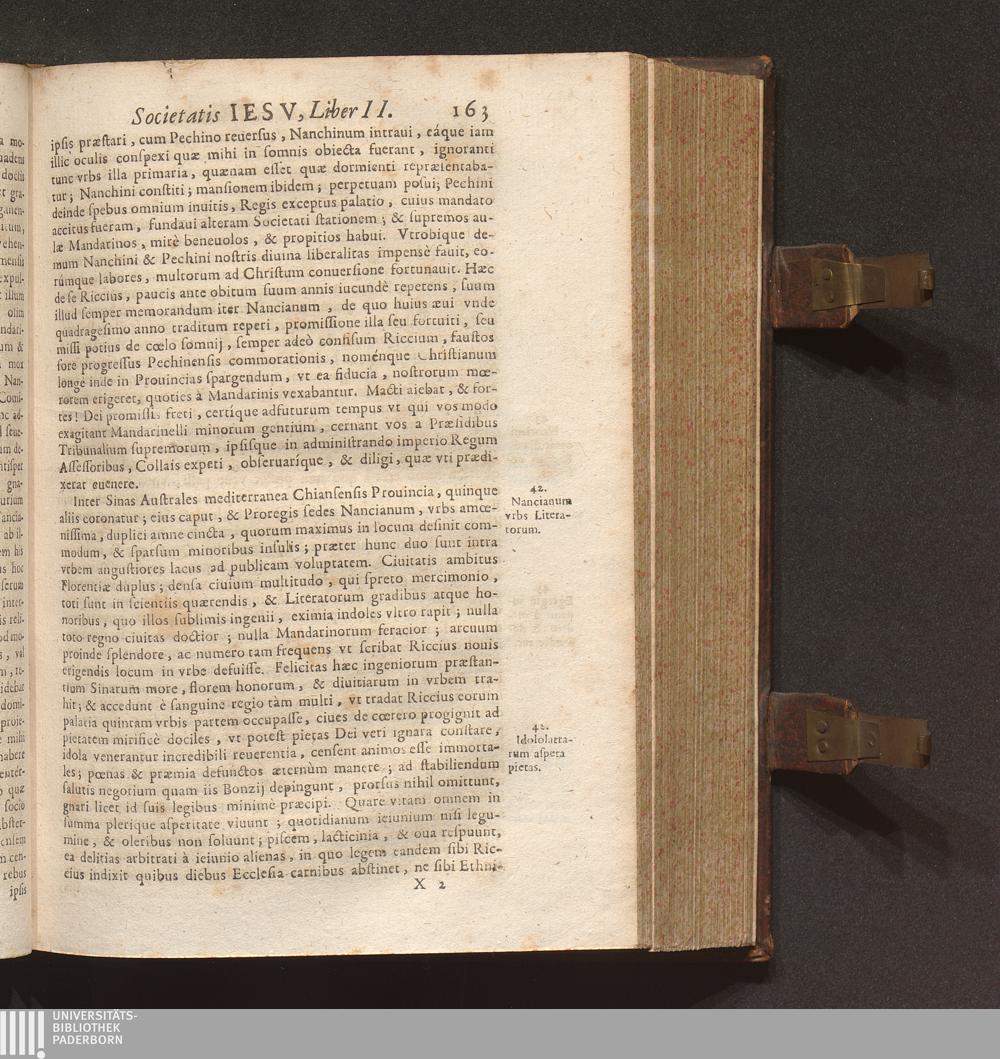 Societatis IESV, Liber II. 163
ipsis præstari, cum Pechino reuersus, Nanchinum intraui, eáque iam
illic oculis conspexi quæ mihi in somnis obiecta fuerant, ignoranti
tunc vrbs illa primaria, quænam esset quæ dormienti repræsentaba-
tur; Nanchini constiti; mansionem ibidem; perpetuam posui; Pechini
deinde spebus omnium inuitis, Regis exceptus palatio, cuius mandato
accitus fueram, fundaui alteram Societati stationem; & supremos au-
læ Mandarinos, mirè beneuolos, & propitios habui. Vtrobique de-
mum Nanchini & Pechini nostris diuina liberalitas impensè fauit, eo-
rúmque labores, multorum ad Christum conuersione fortunauit. Hæc
de se Riccius, paucis ante obitum suum annis iucundè repetens, suum
illud semper memorandum iter Nancianum, de quo huius æui vnde
quadragesimo anno traditum reperi, promissione illa seu fortuiti, seu
missi potius de cœlo somnij, semper adeò confisum Riccium, faustos
fore progressus Pechinensis commorationis, noménque Christianum
longè inde in Prouincias spargendum, vt ea fiducia, nostrorum mœ-
rorem erigeret, quoties à Mandarinis vexabantur. Macti aiebat, & for-
tes! Dei promissis freti, certíque adfuturum tempus vt qui vos modo
exagitant Mandarinelli minorum gentium, cernant vos a Præsidibus
Tribunalium supremorum, ipsisque in administrando imperio Regum
Assessoribus, Collais expeti, obseruaríque, & diligi, quæ vti prædi-
xerat euenere.
Inter Sinas Australes mediterranea Chiansensis Prouincia, quinque
aliis coronatur; eius caput, & Proregis sedes Nancianum, vrbs amœ-
nissima, duplici amne cincta, quorum maximus in locum desinit com-
modum, & sparsum minoribus insulis; præter hunc duo sunt intra
vrbem angustiores lacus ad publicam voluptatem. Ciuitatis ambitus
Florentiæ duplus; densa ciuium multitudo, qui spreto mercimonio,
toti sunt in scientiis quærendis, & Literatorum gradibus atque ho-
noribus, quo illos sublimis ingenii, eximia indoles vltro rapit; nulla
toto regno ciuitas doctior; nulla Mandarinorum feracior; arcuum
proinde splendore, ac numero tam frequens vt scribat Riccius nouis
erigendis locum in vrbe defuisse. Felicitas hæc ingeniorum præstan-
tium Sinarum more, florem honorum, & diuitiarum in vrbem tra-
hit; & accedunt è sanguine regio tàm multi, vt tradat Riccius eorum
palatia quintam vrbis partem occupasse, ciues de cœrero progignit ad
pietatem mirificè dociles, vt potest pietas Dei veri ignara constare,
idola venerantur incredibili reuerentia, censent animos esse immorta-
les; pœnas & præmia defunctos æternùm manere; ad stabiliendum
salutis negotium quam iis Bonzij depingunt, prorsus nihil omittunt,
gnari licet id suis legibus minimè præcipi. Quare vitam omnem in
summa plerique asperitate viuunt; quotidianum ieiunium nisi legu-
mine, & oleribus non soluunt; piscem, lacticinia, & oua respuunt,
ea delitias arbitrati à ieiunio alienas, in quo legem eandem sibi Ric-
cius indixit quibus diebus Ecclesia carnibus abstinet, ne sibi Ethni-
X 2
42.
Nancianum
vrbs Litera-
torum.
42.
Idololatra-
rum aspera
pietas.
UNIVERSITÄTS-
BIBLIOTHEK
PADERBORN